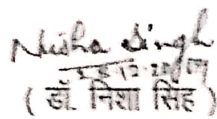 Nisha Singh
(डॉ. निशा सिंह)